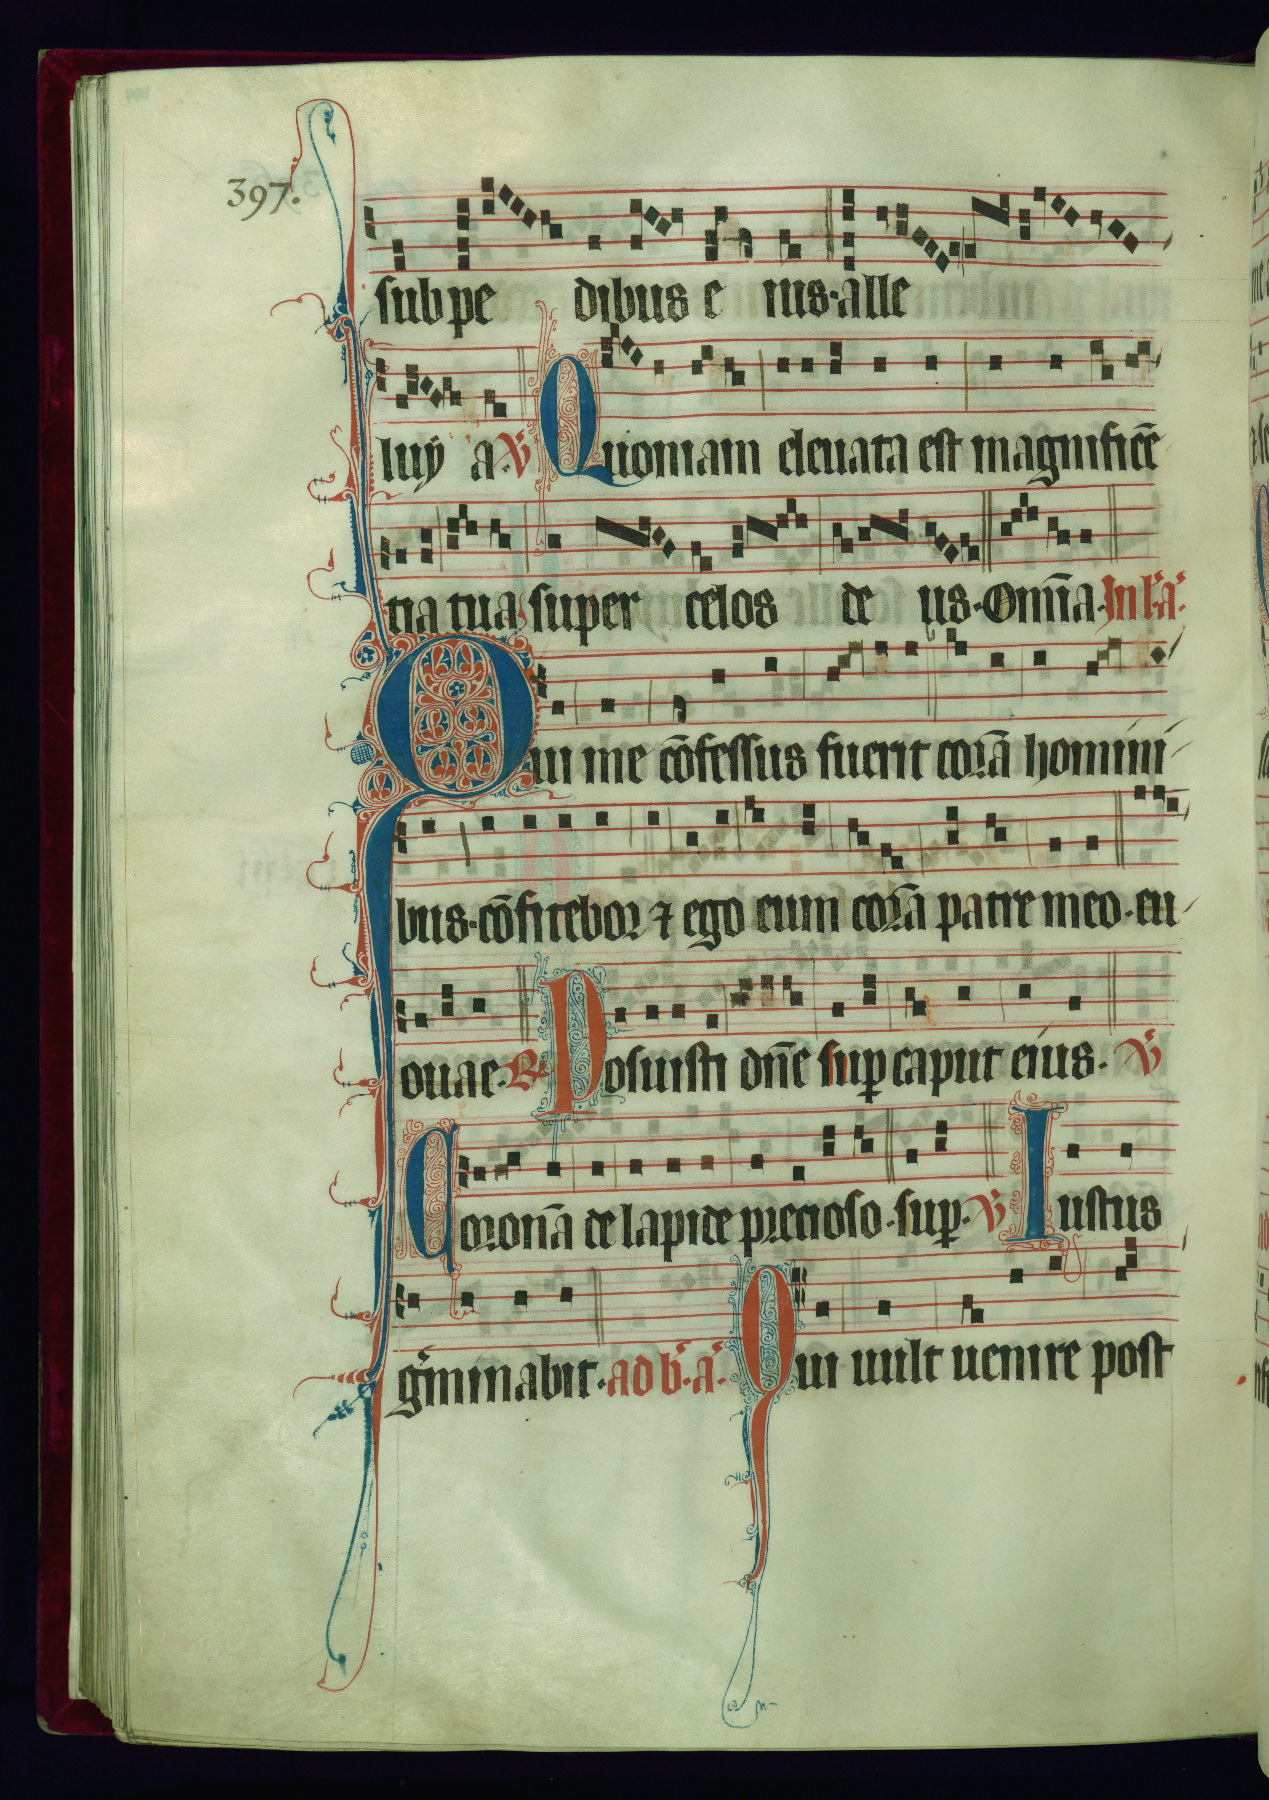 397.
sub pe dibus e ius· alle
luy a· V̄ Quoniam eleuata est magnificē
tia tua super celos de us· Om̄ia· In l· a·
Qui me cōfessus fuerit corā homini
bus· cōfitebor ⁊ ego eum corā patre meo· eu
ouae· ℟ Posuisti dn̄e sup caput eius· V̄
Coronā de lapide precioso· sup· V̄ Iustus
g̃minabit· ad b· a· Qui uult uenire post